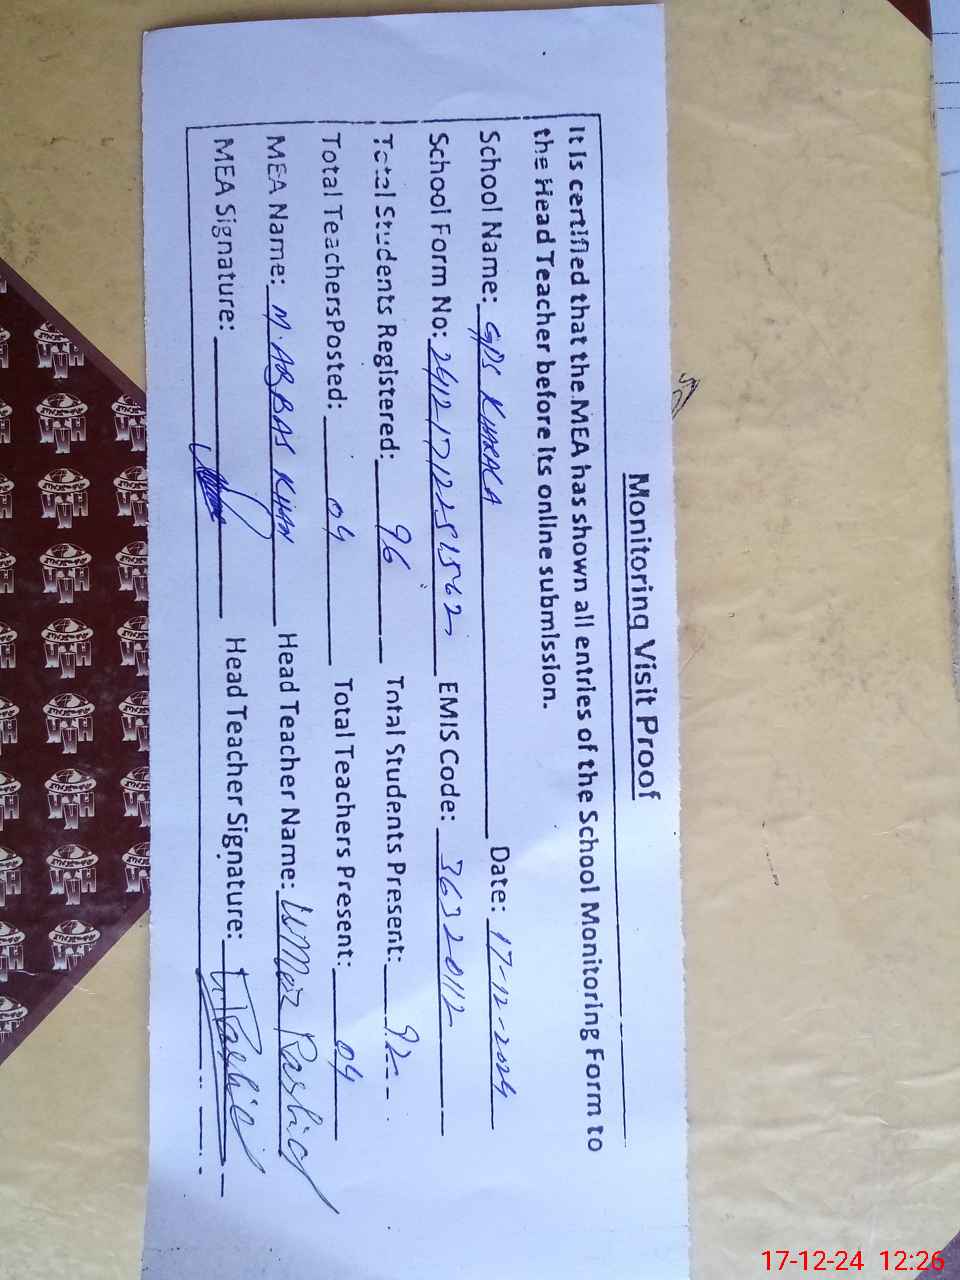 Monitoring Visit Proof
It is certified that the MEA has shown all entries of the School Monitoring Form to
the Head Teacher before its online submission.
School Name: GPS KHARALA Date: 17-12-2024
School Form No: EMIS Code: 36320112
Total Students Registered: 96 Total Students Present: 92
Total Teachers Posted: 04 Total Teachers Present: 04
MEA Name: M. ABBAS KHAN Head Teacher Name: UMer Rashid
MEA Signature: Head Teacher Signature: U.Rashid
17-12-24 12:26